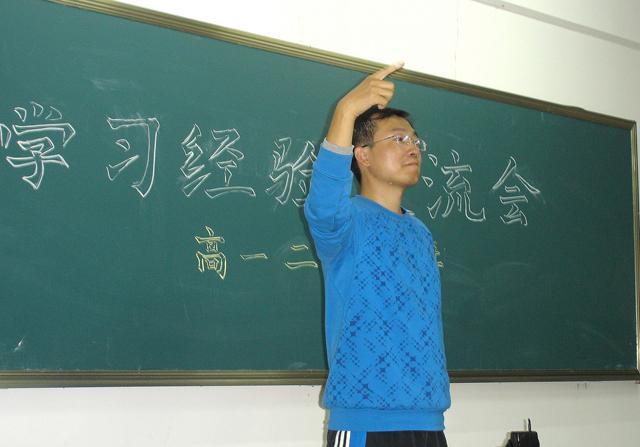 学习经验流会
高一二